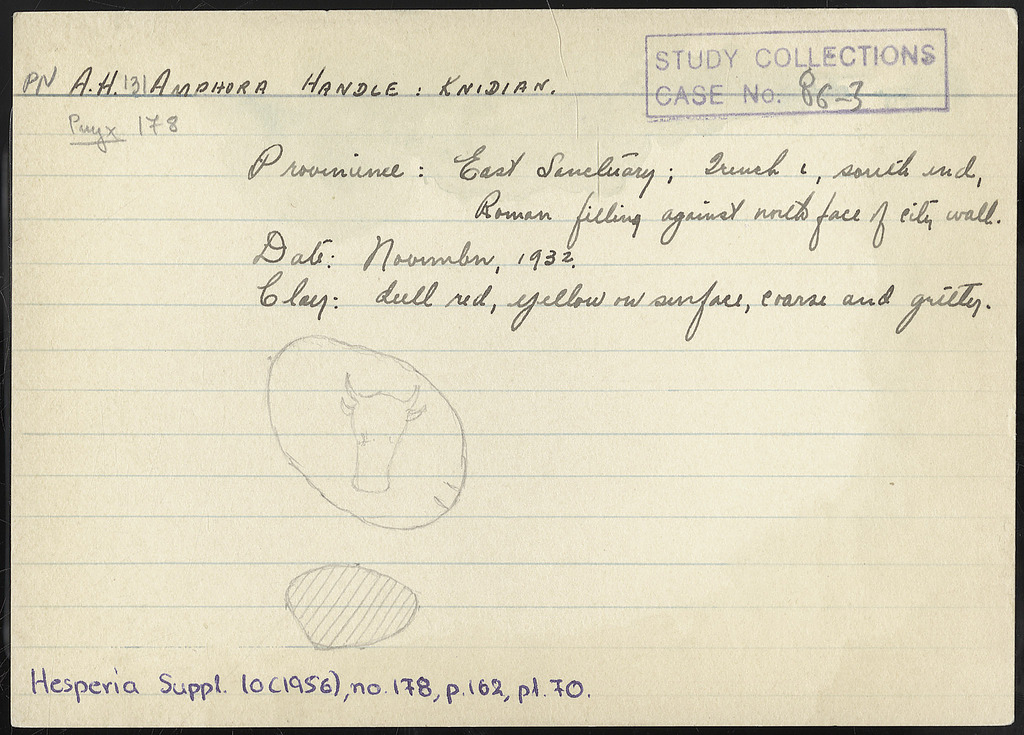 STUDY COLLECTIONS
CASE No. 86-3
PN A.H. 131 AMPHORA HANDLE : KNIDIAN.
Pnyx 178
Provinience : East Sanctuary; Trench i, south end,
Roman filling against north face of city wall.
Date: November, 1932.
Clay: dull red, yellow on surface, coarse and gritty.
Hesperia Suppl. 10 (1956), no. 178, p. 162, pl. 70.